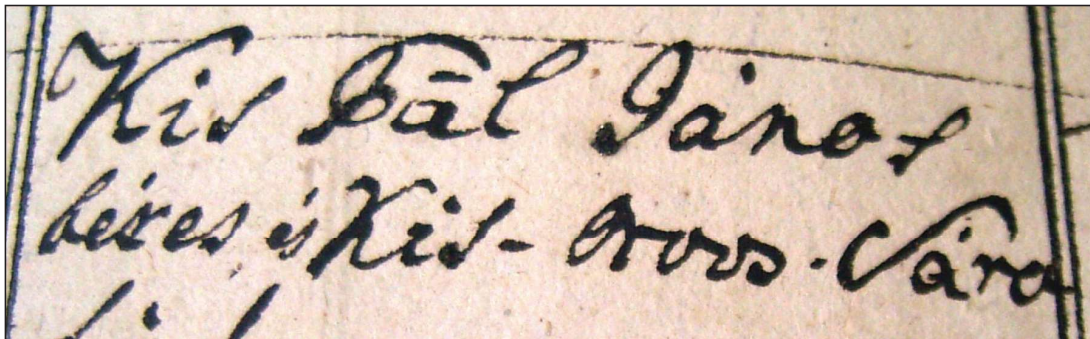 Kis Pál János
béres és Kis- Orvos. Sára